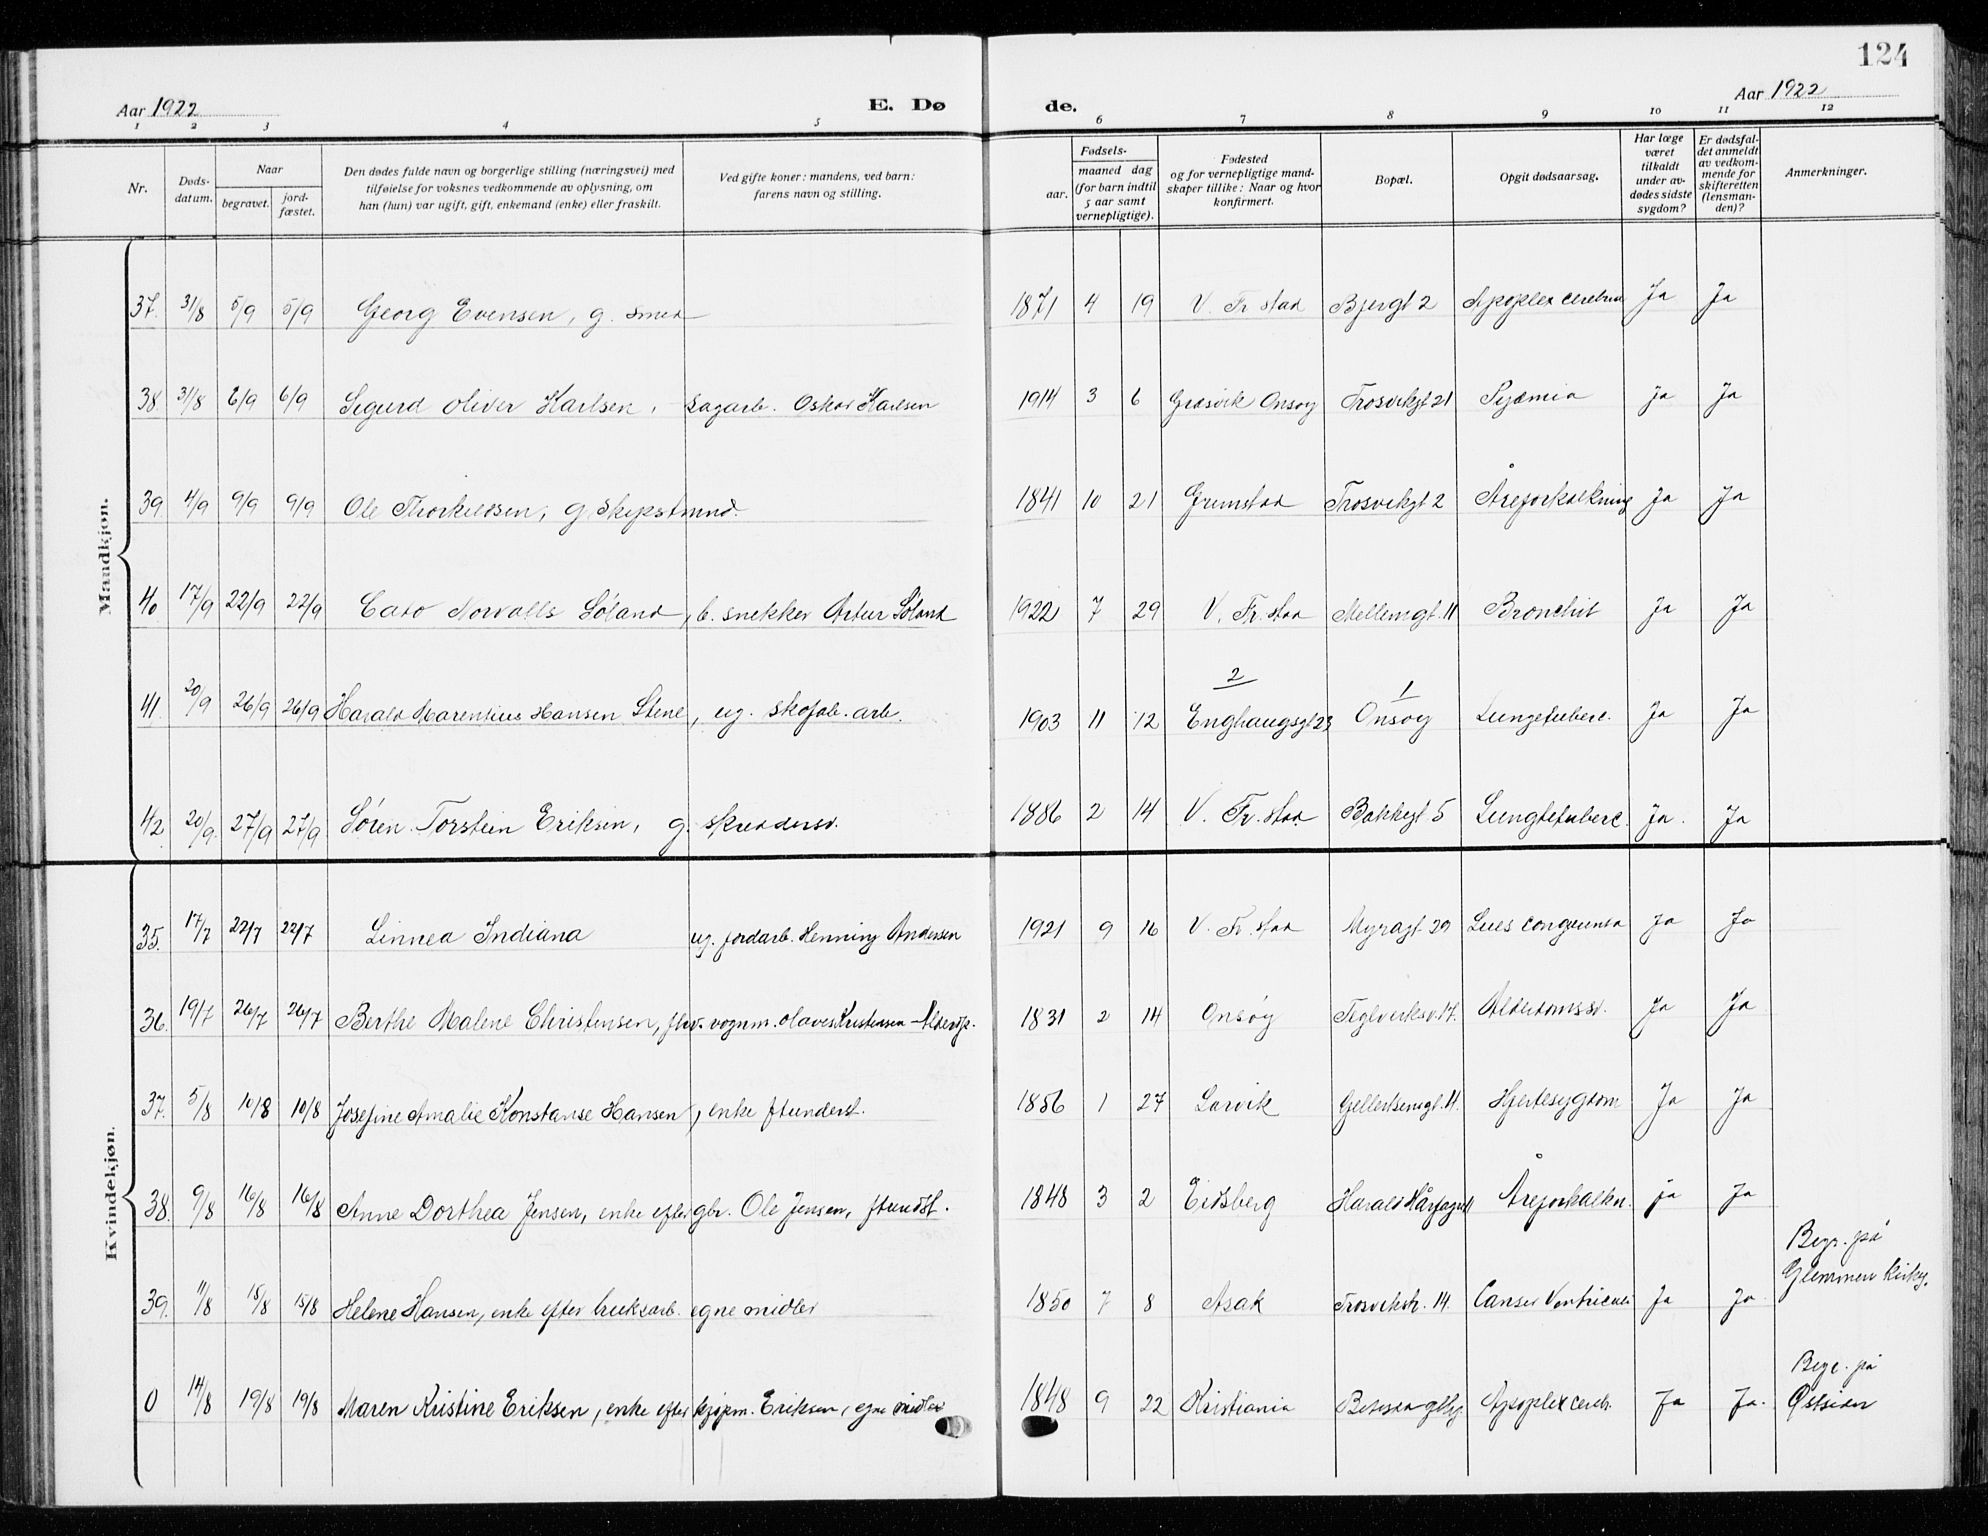 124
Aar 1922 E. Dø de. Aar 1922
1 2 3 4 5 6 7 8 9 10 11 12
Nr.
Døds-
datum.
Naar
begravet.
jord-
fæstet.
Den dødes fulde navn og borgerlige stilling (næringsvei) med
tilføielse for voksnes vedkommende av oplysning, om
han (hun) var ugift, gift, enkemand (enke) eller fraskilt.
Ved gifte koner: mandens, ved barn:
farens navn og stilling.
Fødsels-
aar.
maaned dag
(for barn indtil
5 aar samt
vernepligtige).
Fødested
og for vernepligtige mand-
skaper tillike: Naar og hvor
konfirmert.
Bopæl.
Opgit dødsaarsag.
Har læge
været
tilkaldt
under av-
dødes sidste
sygdom?
Er dødsfal-
det anmeldt
av vedkom-
mende for
skifteretten
(lensman-
den)?
Anmerkninger.
Mandkjøn.
37. 31/8 5/9 5/9 Georg Evensen, g. smed 1871 4 19 V. Fr.stad Bjergt 2 Apoplex cerebri Ja Ja
38 31/8 6/9 6/9 Sigurd Oliver Karlsen, Sagarb. Oskar Karlsen 1914 3 6 Græsvik Onsøy Trosvikgt 21 Pyæmia Ja Ja
39 4/9 9/9 9/9 Ole Thorkildsen, g. skipstmnd. 1841 10 21 Grimstad Trosvikgt 2 Åreforkalkning Ja Ja
40 17/9 22/9 22/9 Cato Norvalls Søland, b. snekker Artur Søland 1922 7 29 V. Fr.stad Mellemgt. 11 Bronchit Ja Ja
2 1
41. 20/9 26/9 26/9 Harald Marentius Hansen Stene, ug. skofab. arb. 1903 11 12 Enghaugsgt 23 Onsøy Lungetuberc. Ja Ja
42. 20/9. 27/9 27/9 Søren Torstein Eriksen, g. skreddersv. 1886 2 14 V. Fr.stad Bakkegt 5 Lungetuberc. Ja. Ja
Kvindekjøn.
35. 17/7 22/7 22/7 Linnea Indiana ug. jordarb. Henning Andersen 1921 9 16 V. Fr.stad Myragt 29 Lues congenita Ja Ja
36. 19/7 26/7 26/7 Berthe Malene Christensen, vognm. Olaves Kristensen 1831 2 14 Onsøy Teglverksv. 17. Alderdomssv. Ja Ja
37. 5/8 10/8 10/8 Josefine Amalie Konstanse Hansen, enke ftunderst. 1856 1 27 Larvik Gellertsensgt. 11. Hjertesygdom Ja Ja
38. 9/8 16/8 16/8 Anne Dorthea Jensen, enke efter gbr. Ole Jensen, ftundst. 1848 3 2 Eidsberg Åreforkalkn. ja Ja
39. 11/8 15/8 15/8 Helene Hansen, enke efter bruksarb. egne midler 1850 7 8 Asak Trosvikstr. 14. Canser Ventriculi Ja Ja Begr. på
Glemmen kirkg.
0 14/8 19/8 19/8 Maren Kristine Eriksen, enke efter kjøpm. Eriksen, egne midler 1848 9 22 Kristiania Apoplex cerebr. Ja Ja. Begr. på
Østsiden